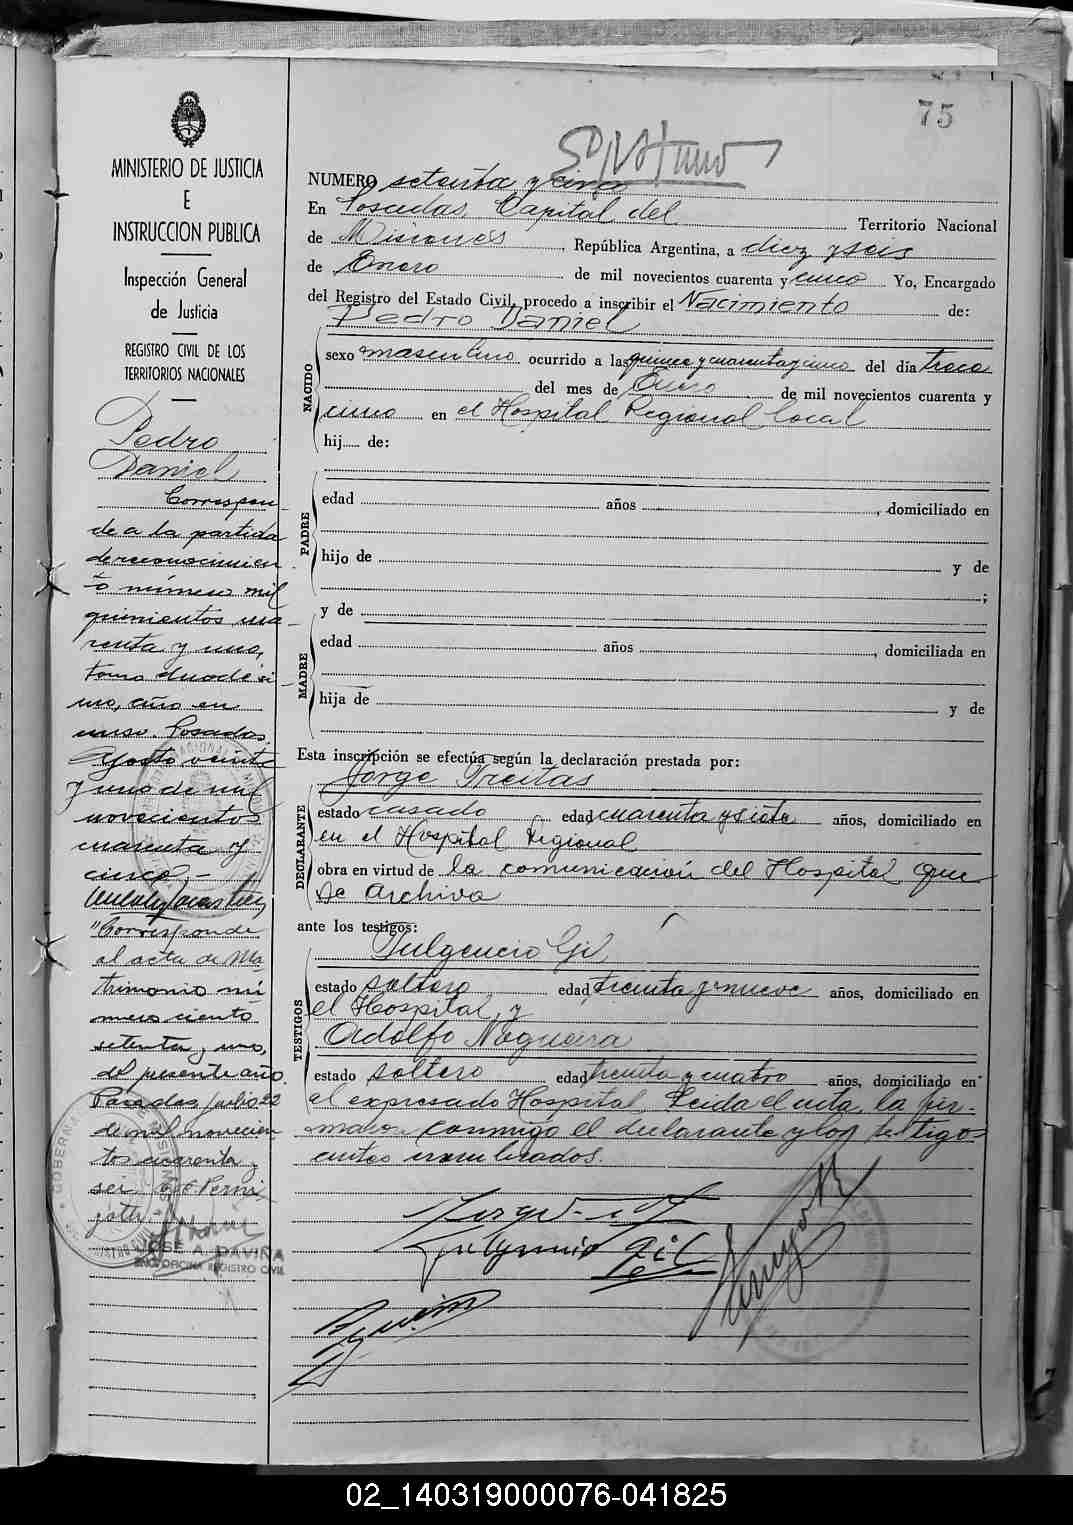 75
MINISTERIO DE JUSTICIA
E
INSTRUCCION PUBLICA
Inspección General
de Justicia
REGISTRO CIVIL DE LOS
TERRITORIOS NACIONALES
Pedro
Daniel
Correspon-
de a la partida
de reconocimien
to número mil
quinientos cua
renta y uno,
tomo duodeci
mo, año en
curso. Posadas,
Agosto veinte
y uno de mil
novecientos
cuarenta y
cinco-
"Corresponde
al acta de Ma-
trimonio nú
mero ciento
setenta y uno,
del presente año.
Posadas, julio 22
de mil novecien
tos cuarenta y
seis
JOSE A. DAVIÑA
ENC. OFICINA REGISTRO CIVIL
NUMERO setenta y cinco
En Posadas, Capital del Territorio Nacional
de Misiones, República Argentina, a diez y seis
de Enero de mil novecientos cuarenta y cinco Yo, Encargado
del Registro del Estado Civil, procedo a inscribir el Nacimiento de:
Pedro Daniel
NACIDO
sexo masculino ocurrido a las quince y cuarenta y cinco del día trece
del mes de Enero de mil novecientos cuarenta y
cinco en el Hospital Regional local
hij..... de:
PADRE
edad años , domiciliado en
hijo de y de
;
y de
MADRE
edad años , domiciliada en
hija de y de
Esta inscripción se efectúa según la declaración prestada por:
Jorge Freitas
DECLARANTE
estado casado edad cuarenta y siete años, domiciliado en
en el Hospital Regional
obra en virtud de la comunicación del Hospital que
se archiva
ante los testigos:
Fulgencio Gil
TESTIGOS
estado soltero edad treinta y nueve años, domiciliado en
el Hospital, y
Adolfo Nogueira
estado soltero edad treinta y cuatro años, domiciliado en
el expresado Hospital. Leida el acta, la fir-
maron conmigo el declarante y los testigos
antes nombrados.
Fulgencio Gil
02_140319000076-041825